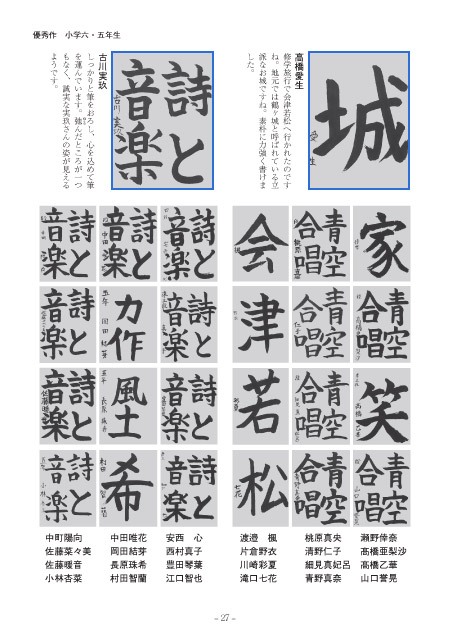 優秀作 小学六・五年生
城
愛生
髙橋愛生
修学旅行で会津若松へ行かれたのです
ね。地元では鶴ヶ城と呼ばれている立
派なお城ですね。素朴に力強く書けま
した。
詩と
音楽
古川実玖
古川実玖
しっかりと筆をおろし、心を込めて筆
を運んでいます。弛んだところが一つ
もなく、誠実な実玖さんの姿が見える
ようです。
家
青空
合唱
笑
青空
合唱
青空
合唱
青空
合唱
青空
合唱
青空
合唱
会
津
若
松
詩と
音楽
詩と
音楽
詩と
音楽
詩と
音楽
詩と
音楽
力作
風土
希
詩と
音楽
詩と
音楽
詩と
音楽
詩と
音楽
瀬野倖奈
髙橋亜梨沙
髙橋乙華
山口誉晃
桃原真央
清野仁子
細見真妃呂
青野真奈
渡邉 楓
片倉野衣
川崎彩夏
滝口七花
安西 心
西村真子
豊田琴葉
江口智也
中田唯花
岡田結芽
長原珠希
村田智蘭
中町陽向
佐藤菜々美
佐藤暖音
小林杏菜
- 27 -